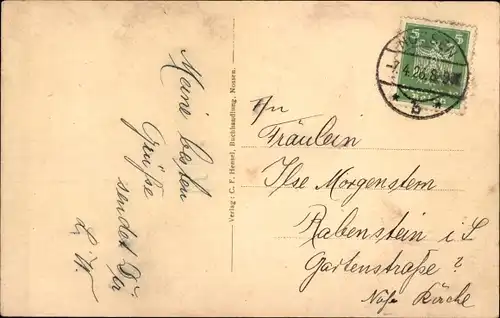 Meine besten
Grüße
sendet Dir
L. W.
Verlag: C. F. Hensel, Buchhandlung, Nossen.
5 5
NOSSEN
-7.4.26. 8-9
* b *
An
Fräulein
Ilse Morgenstern
Rabenstein i. S.
Gartenstraße ?
Nähe Kirche